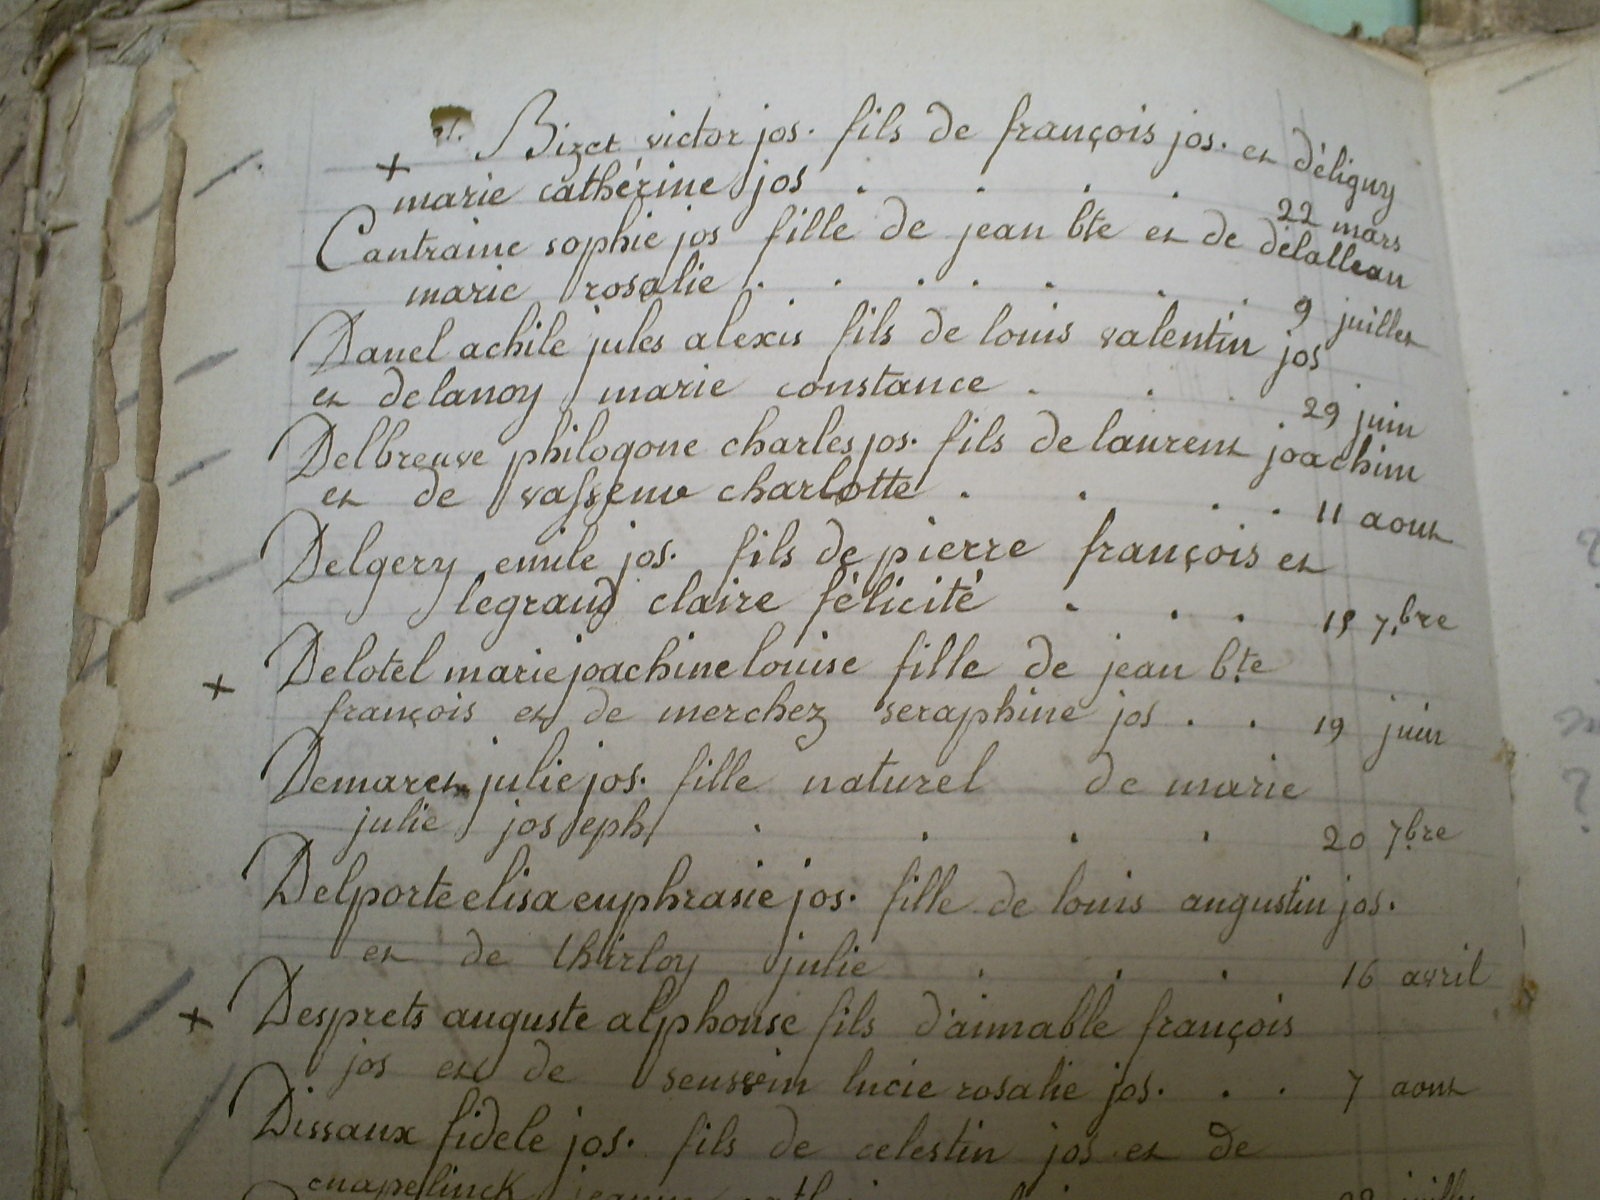 Bizet victor jos. fils de françois jos. et déligny
marie cathérine jos . . . . 22 mars
Cantraine sophie jos fille de jean bte et de délalleau
marie rosalie . . . . . . . 9 juillet
Danel achile jules alexis fils de louis valentin jos
et delanoy marie constance . . . 29 juin
Delbreuve philogone charles jos. fils de laurent joachim
et de charlotte . . . . 11 aout
Delgery emile jos. fils de pierre françois et
legrand claire félicité . . . 15 7.bre
Delotel marie joachine louise fille de jean b.te
françois et de merchez seraphine jos . . 19 juin
Demaret julie jos. fille naturel de marie
julie joseph . . . . 20 7.bre
Delporte elisa euphrasie jos. fille de louis augustin jos.
et de thirloy julie . . . 16 avril
Desprets auguste alphonse fils d'aimable françois
jos et de lucie rosalie jos. . . 7 aout
Dissaux fidele jos. fils de celestin jos et de
cnapelinck